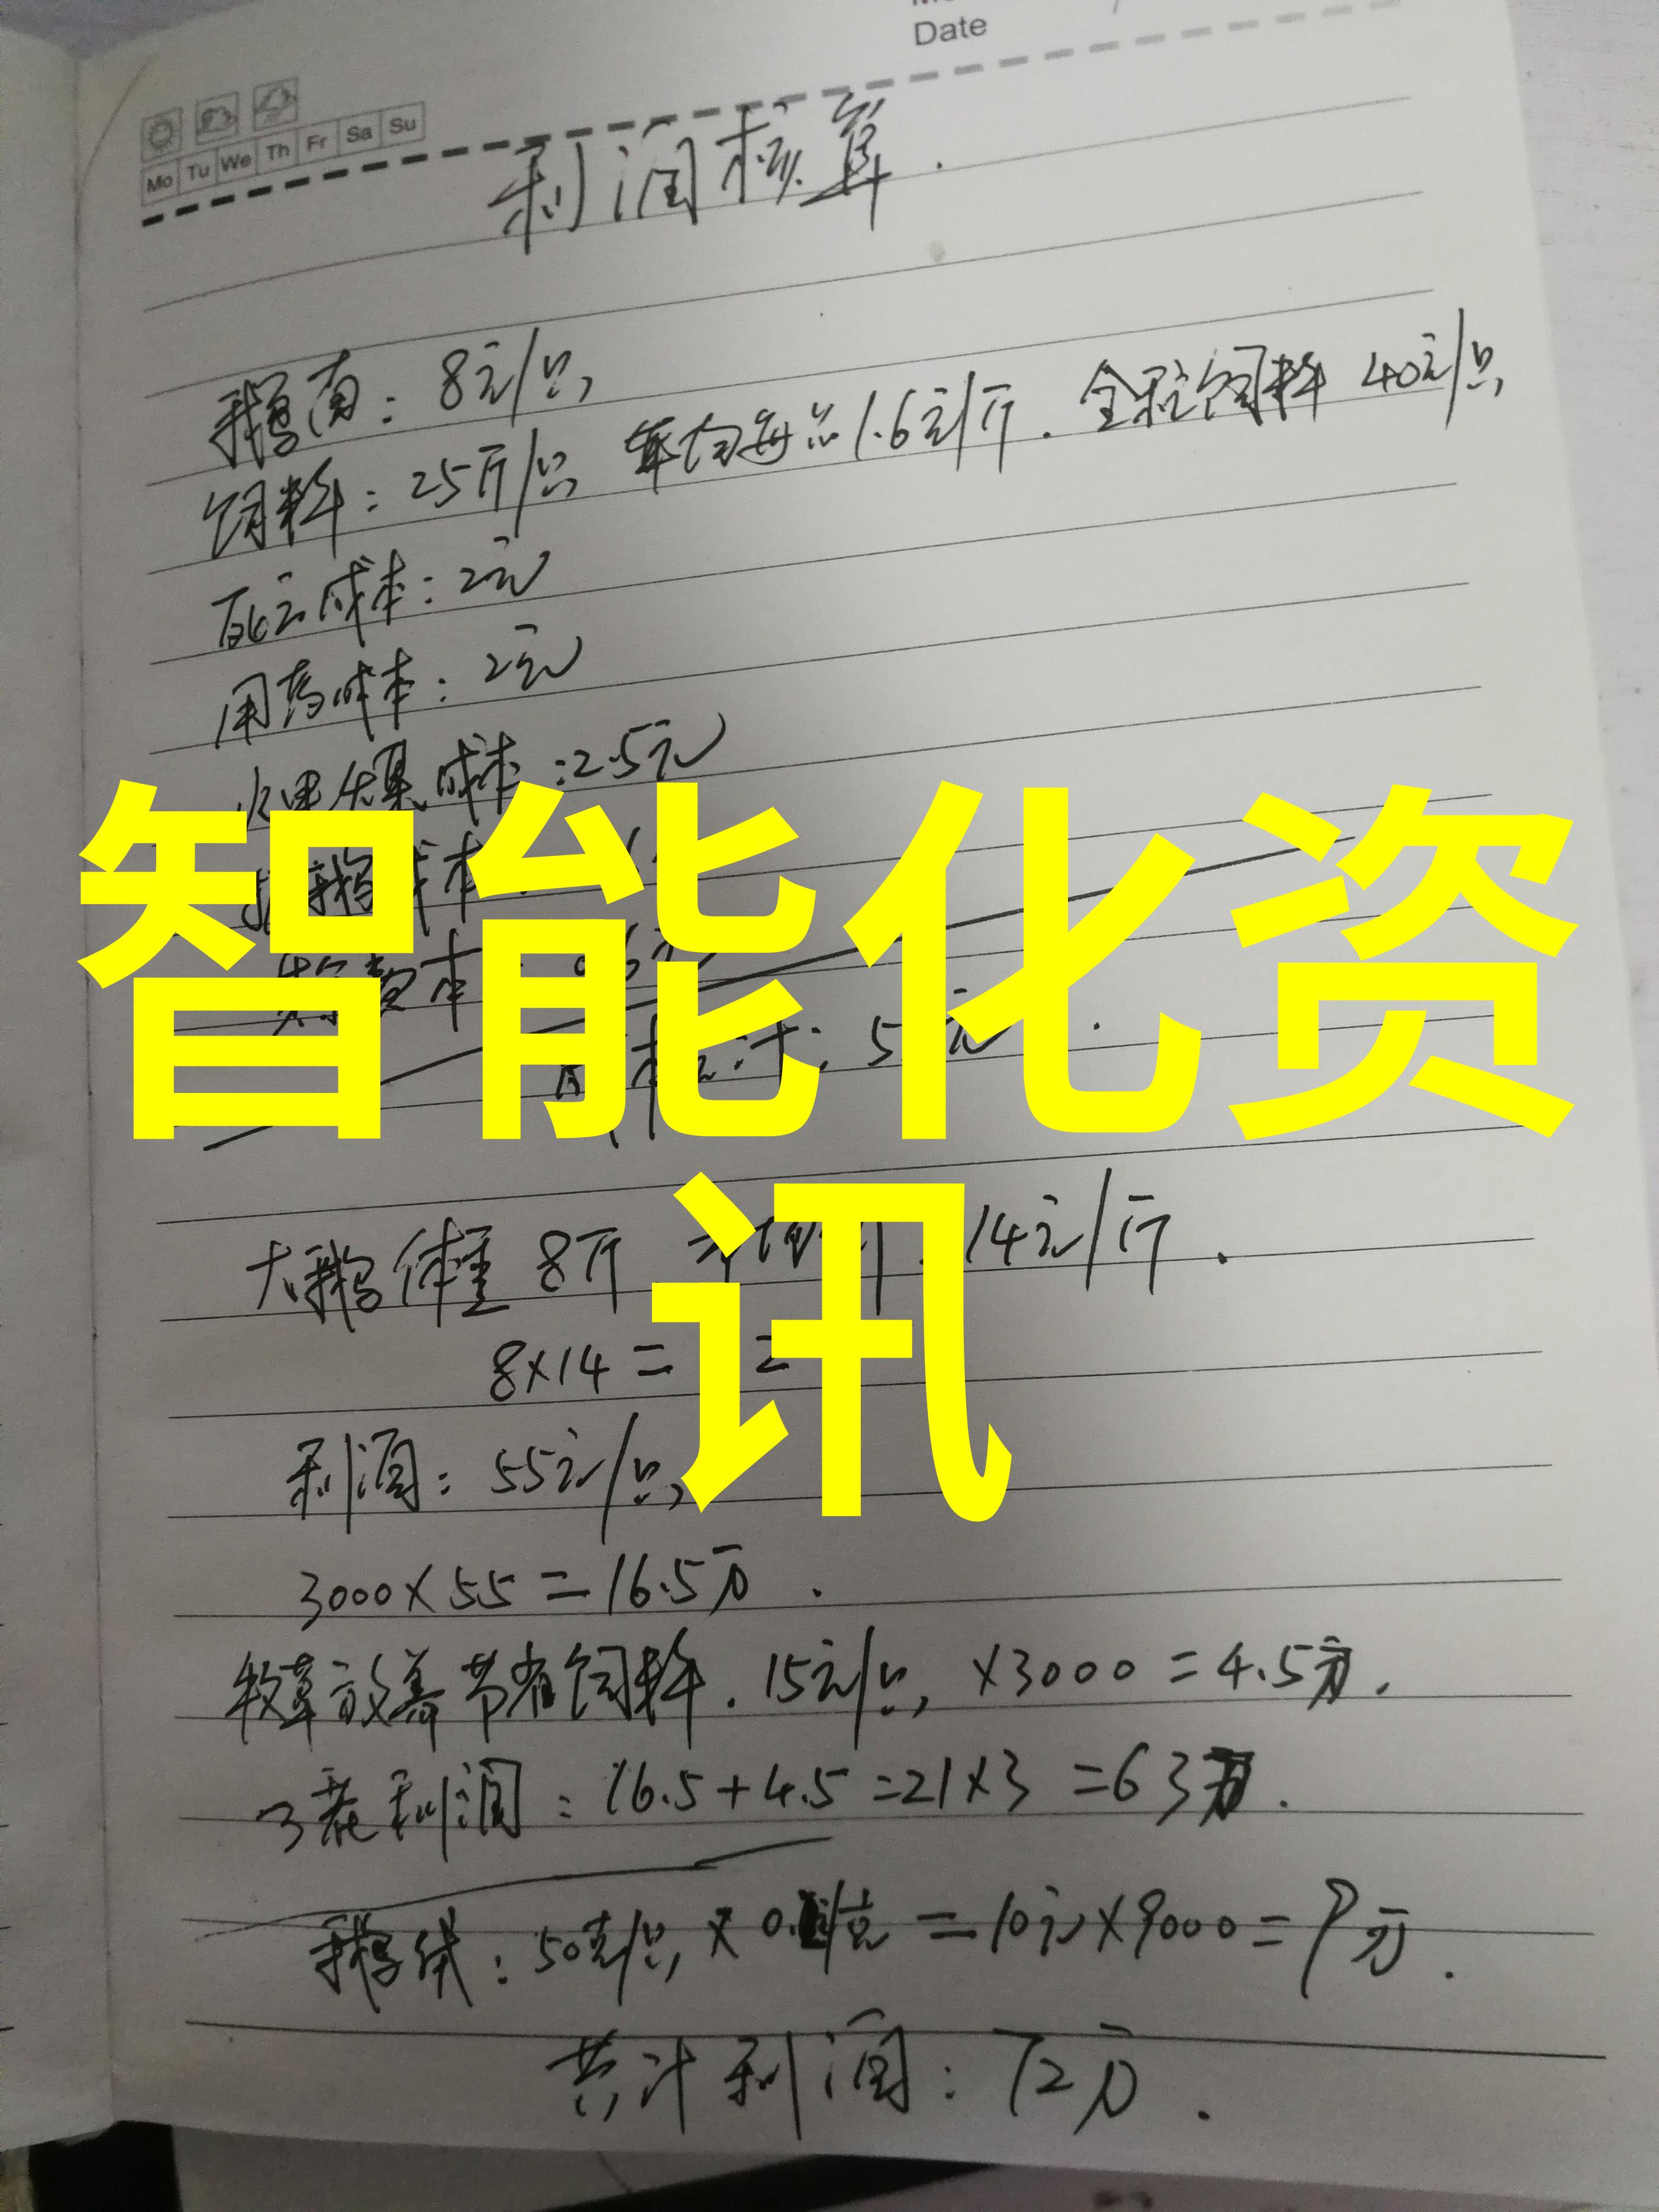 Date
Mo Tu We Th Fr Sa Su
利润核算.
鹅苗: 8元/只
饲料: 25斤/只 平均每斤1.6元/斤. 全程饲料 40元/只
死亡成本: 2元
用药成本: 2元
成本:2.5元
智能化资
大鹅体重 8斤 14元/斤.
讯
8×14 =
利润: 55元/只
3000×55=16.5万.
牧草放养节省饲料. 15元/只 ×3000=4.5万.
3茬利润: 16.5+4.5=21×3=63万.
鹅绒: 50克/只 × 0. /克 = 10元×9000=9万.
共计利润: 72万.